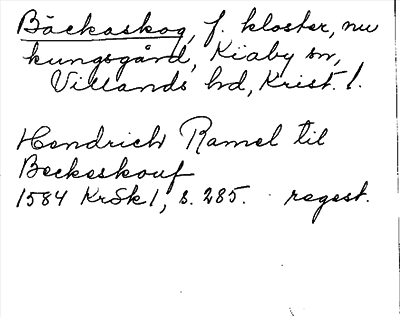 Bäckaskog, f. kloster, nu
kungsgård, Kiaby sn,
Villands hd, Krist. l.
Hendrich Ramel til
Beckeskouf
1584 KrSk1, s. 285. regest.